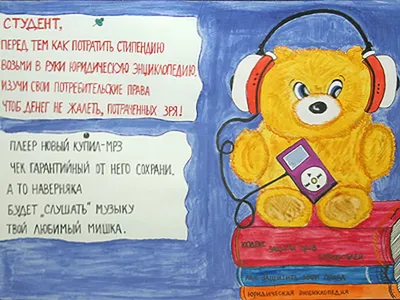 СТУДЕНТ,
ПЕРЕД ТЕМ КАК ПОТРАТИТЬ СТИПЕНДИЮ
ВОЗЬМИ В РУКИ ЮРИДИЧЕСКУЮ ЭНЦИКЛОПЕДИЮ,
ИЗУЧИ СВОИ ПОТРЕБИТЕЛЬСКИЕ ПРАВА
ЧТОБ ДЕНЕГ НЕ ЖАЛЕТЬ, ПОТРАЧЕННЫХ ЗРЯ!
ПЛЕЕР НОВЫЙ КУПИЛ-МР3
ЧЕК ГАРАНТИЙНЫЙ ОТ НЕГО СОХРАНИ,
А ТО НАВЕРНЯКА
БУДЕТ „СЛУШАТЬ" МУЗЫКУ
ТВОЙ ЛЮБИМЫЙ МИШКА.
ЮРИДИЧЕСКАЯ ЭНЦИКЛОПЕДИЯ